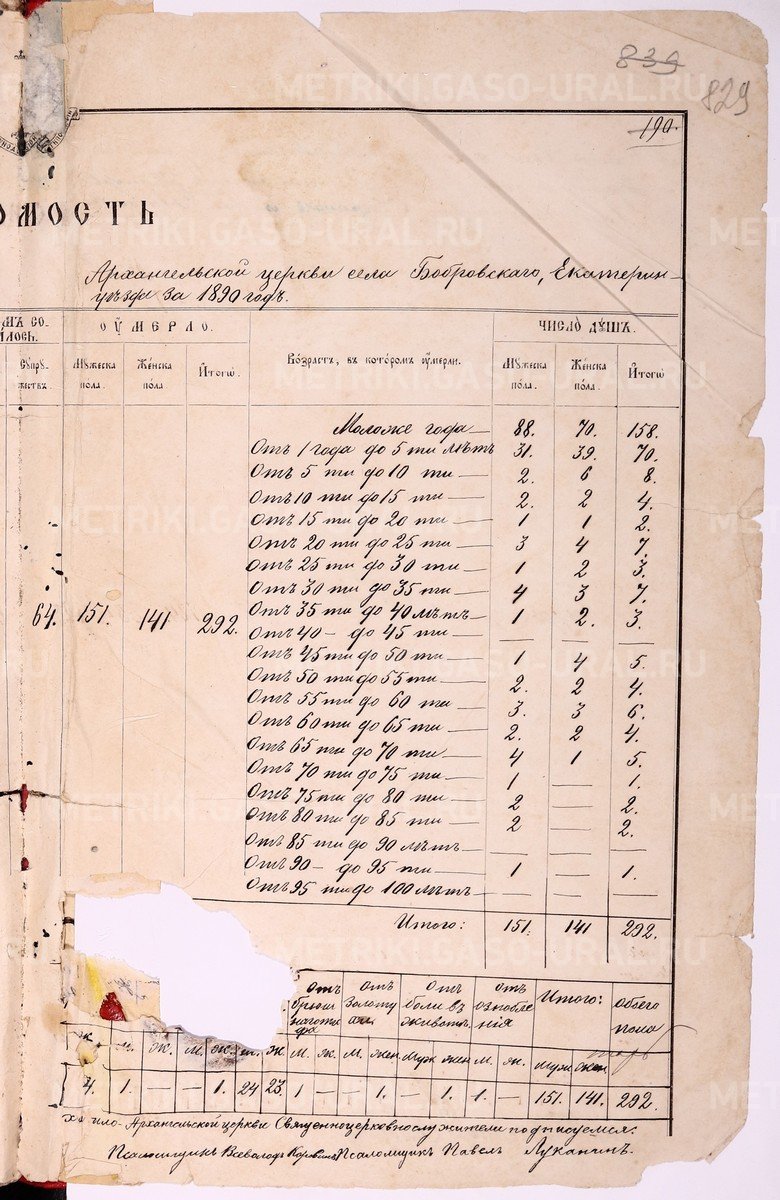 839
829
190.
ОМОСТЬ
Архангельской церкви села Бобровскаго, Екатерин-
уѣзда за 1890 годъ.
ОУМЕРЛО.
ЧИСЛО ДУШЪ.
Супру-
жествъ. Мужеска
пола. Женска
пола Итого Возрастъ, въ которомъ оумерли. Мужеска
пола. Женска
пола. Итого
Моложе года 88. 70. 158.
Отъ 1 года до 5 ти лѣтъ 31. 39. 70.
Отъ 5 ти до 10 ти 2. 6 8.
Отъ 10 ти до 15 ти 2. 2 4.
Отъ 15 ти до 20 ти 1 1 2.
Отъ 20 ти до 25 ти 3 4 7.
Отъ 25 ти до 30 ти 1 2 3.
Отъ 30 ти до 35 ти 4 3 7.
64. 151. 141 292. Отъ 35 ти до 40 лѣтъ 1 2. 3.
Отъ 40 – до 45 ти — — —
Отъ 45 ти до 50 ти 1 4 5.
Отъ 50 ти до 55 ти 2. 2 4.
Отъ 55 ти до 60 ти 3. 3 6.
Отъ 60 ти до 65 ти 2. 2 4.
Отъ 65 ти до 70 ти 4 1 5.
Отъ 70 ти до 75 ти 1 — 1.
Отъ 75 ти до 80 ти 2 — 2.
Отъ 80 ти до 85 ти 2 — 2.
Отъ 85 ти до 90 лѣтъ — — —
Отъ 90 – до 95 ти 1 — 1.
Отъ 95 ти до 100 лѣтъ — — —
Итого: 151. 141 292.
Отъ
брюш
наго ти
фа Отъ
золоту
хи Отъ
боли въ
животѣ Отъ
ознобле
нія Итого: Обоего
пола
ж. м. ж. м. ж. м. ж. м. ж. м. жен. муж жен м. ж. муж жен.
4. 1. — — 1. 24 23. 1 — — 1. — 1. 1. — 151. 141. 292.
Архангельской церкви Священноцерковнослужители подписуемся:
Псаломщикъ Всеволодъ Псаломщикъ Павелъ Луканинъ.
METRIKI.GASO-URAL.RU